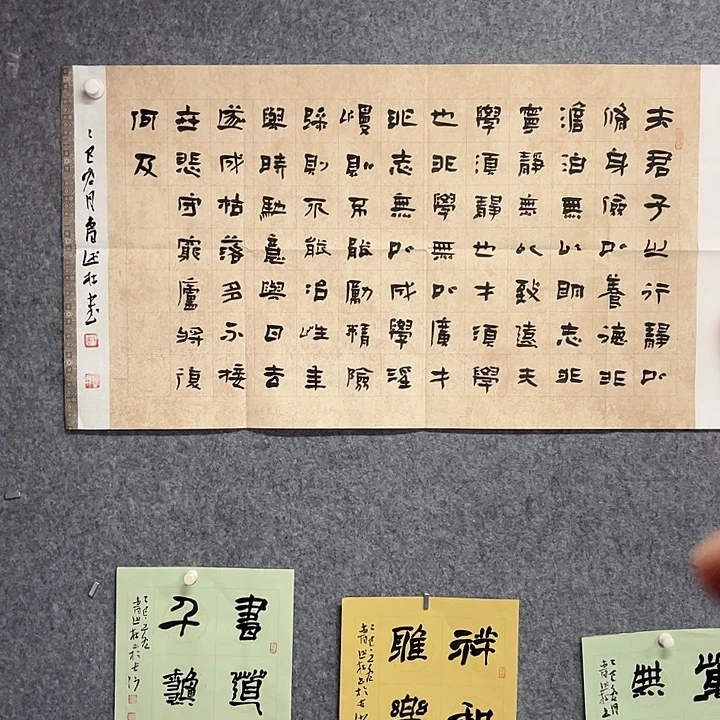 夫君子之行靜以
脩身儉以養德非
澹泊無以明志非
寧靜無以致遠夫
學須靜也才須學
也非學無以廣才
非志無以成學淫
慢則不能勵精險
躁則不能治性年
與時馳意與日去
遂成枯落多不接
世悲守窮廬將復
何及
乙巳月書
書道
祥和
雅樂